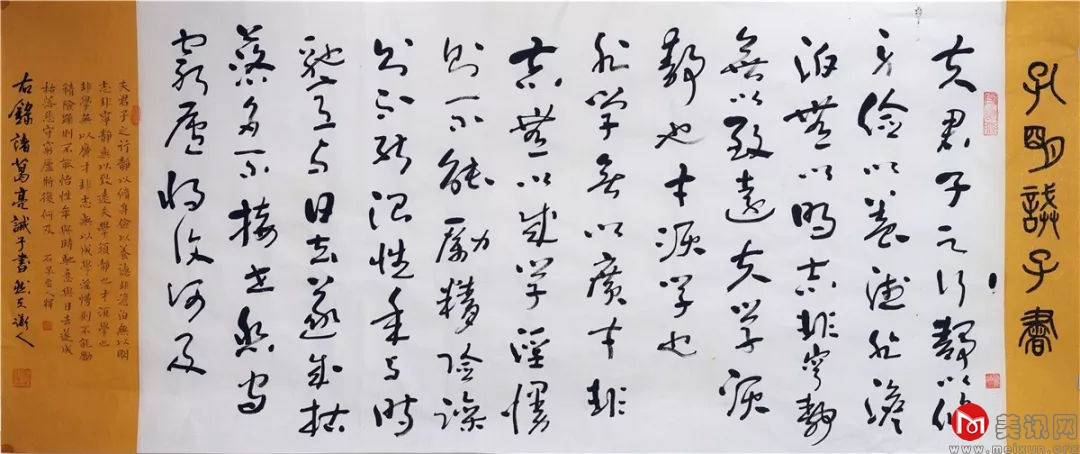 孔明誡子書
夫君子之行靜以修
身儉以養德非澹
泊無以明志非寧靜
無以致遠夫學須
靜也才須學也
非學無以廣才非
志無以成學淫慢
則不能勵精險躁
則不能治性年與時
馳意與日去遂成枯
落多不接世悲守
窮廬將復何及
夫君子之行靜以脩身儉以養德非澹泊無以明
志非寧靜無以致遠夫學須靜也才須學也
非學無以廣才非志無以成學滔慢則不能勵
精險躁則不能性年與時馳意與日去遂成
枯落悲守窮廬將復何及
右錄諸葛亮誡子書
美讯网
www.meixun.org